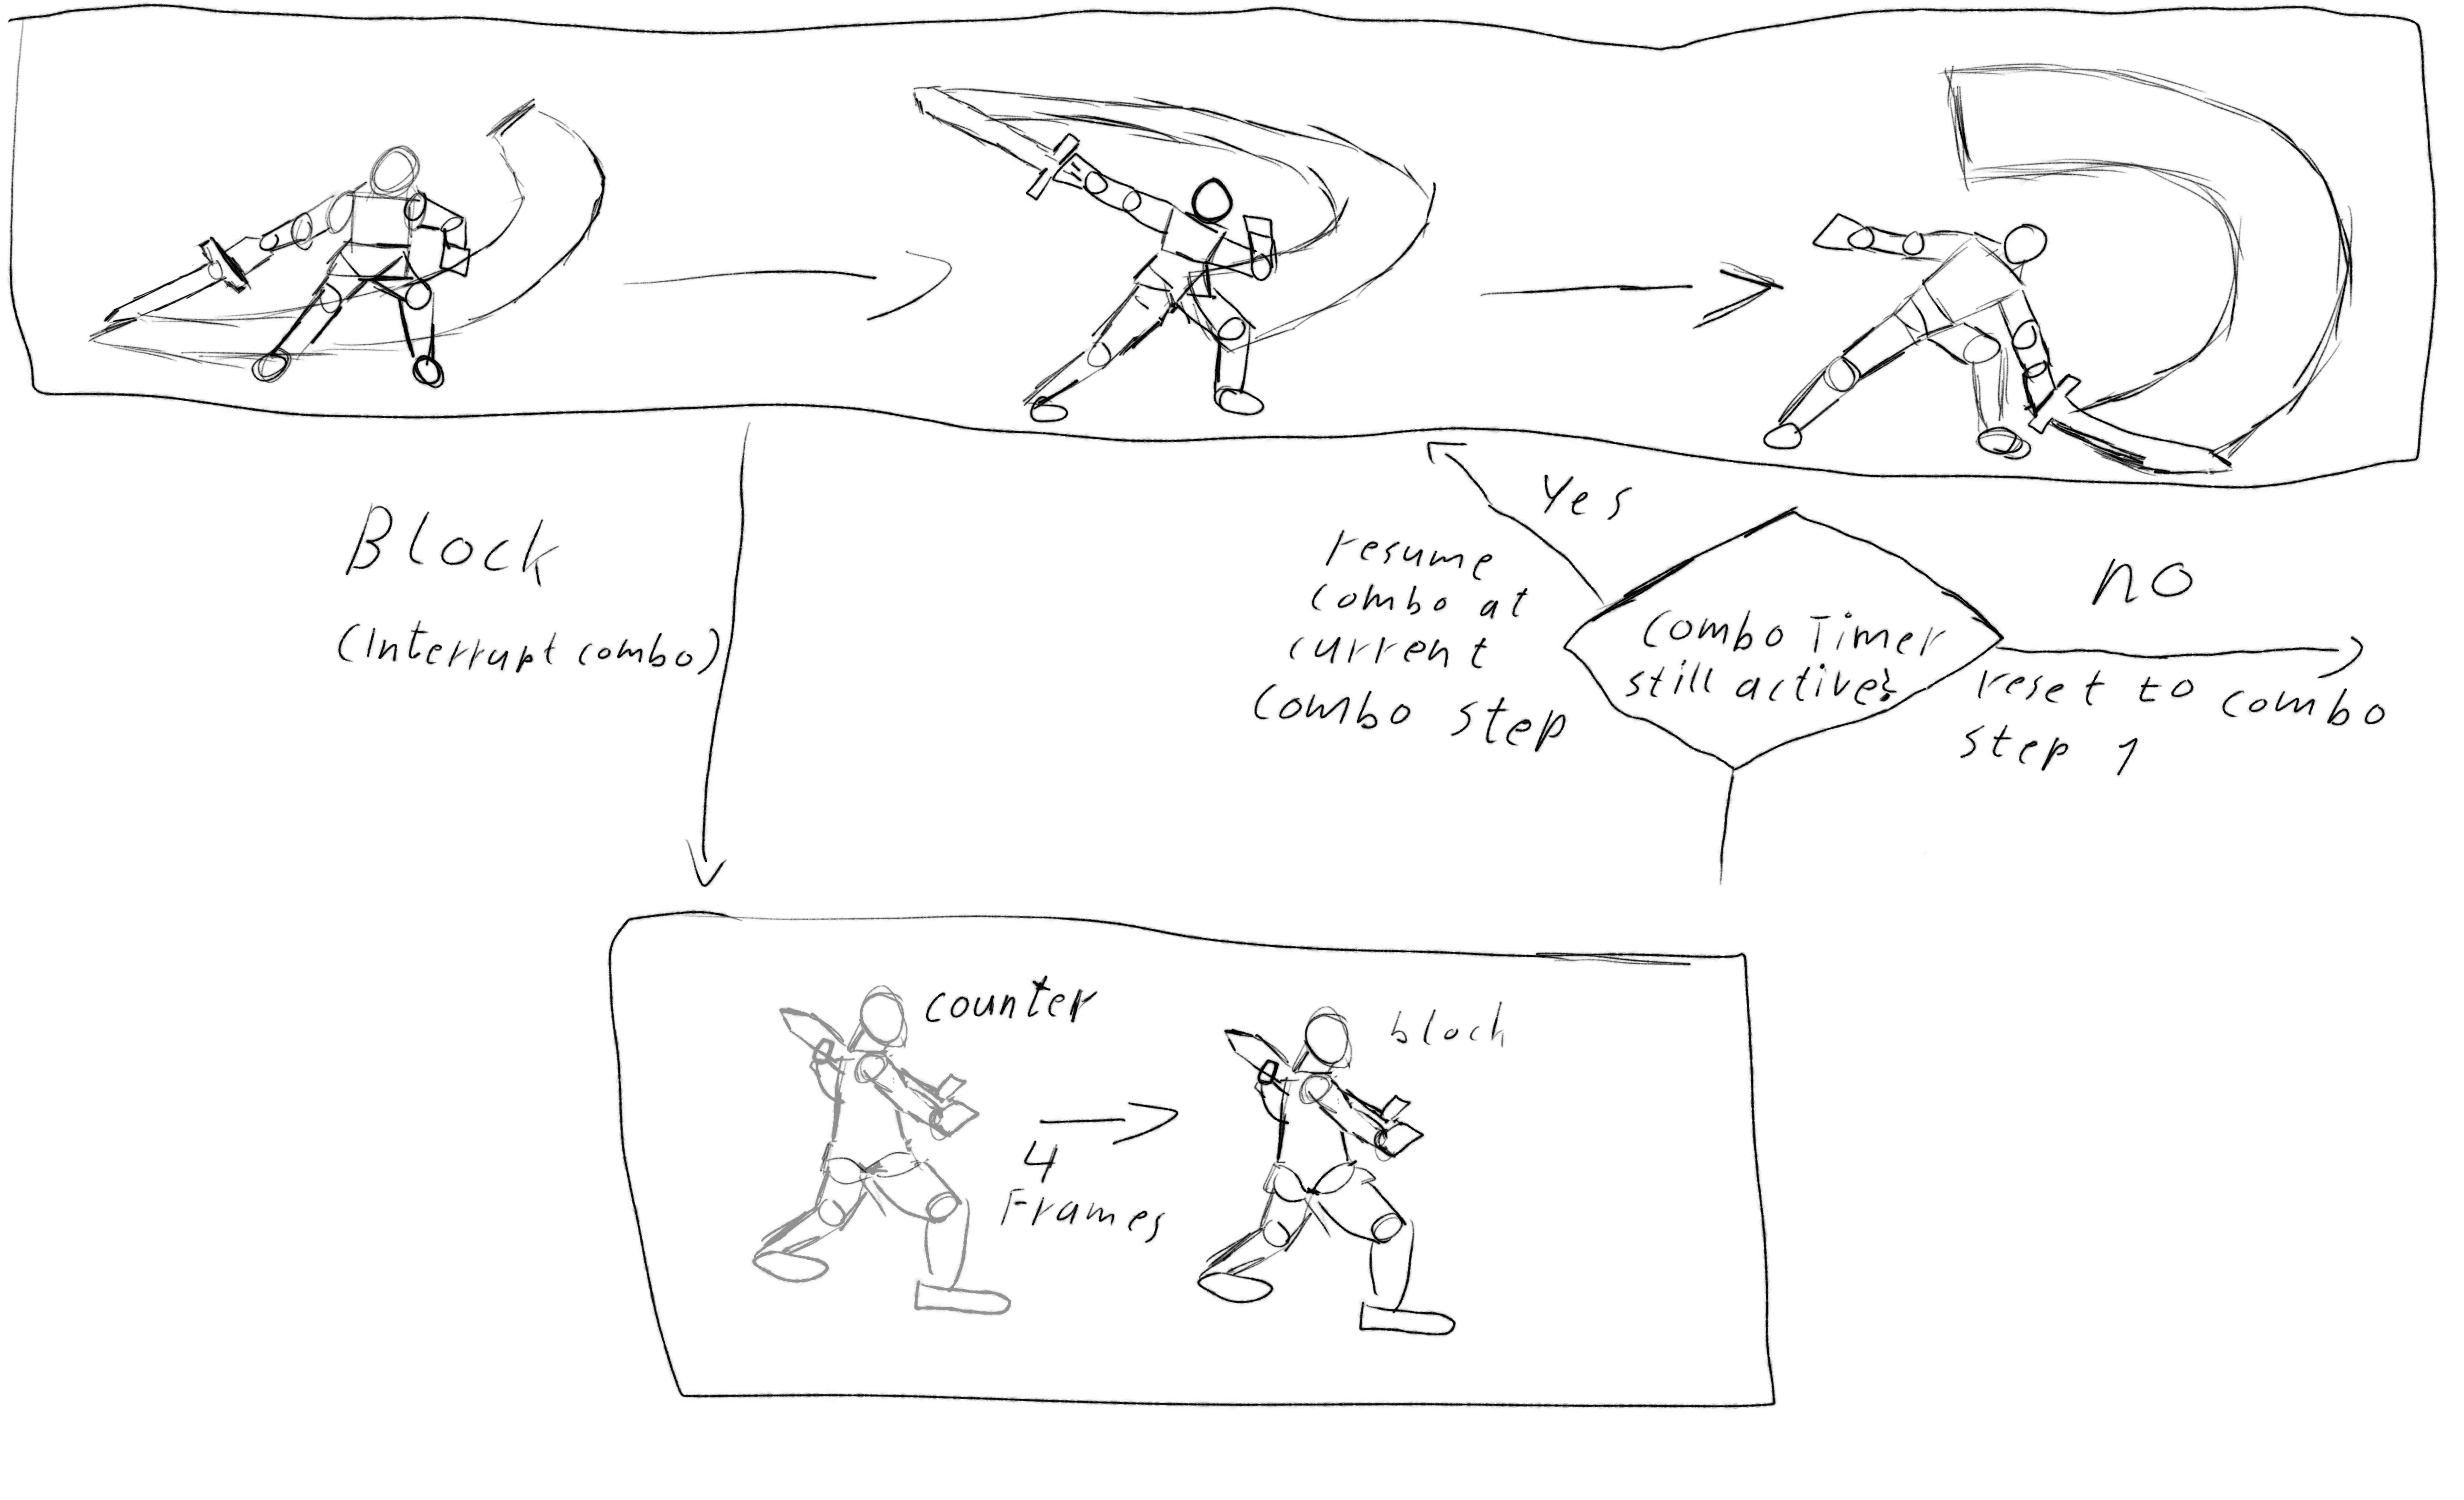 Block
(Interrupt combo)
Yes
resume
combo at
current
combo step
combo Timer
still active?
no
reset to combo
step 1
counter
4
Frames
block